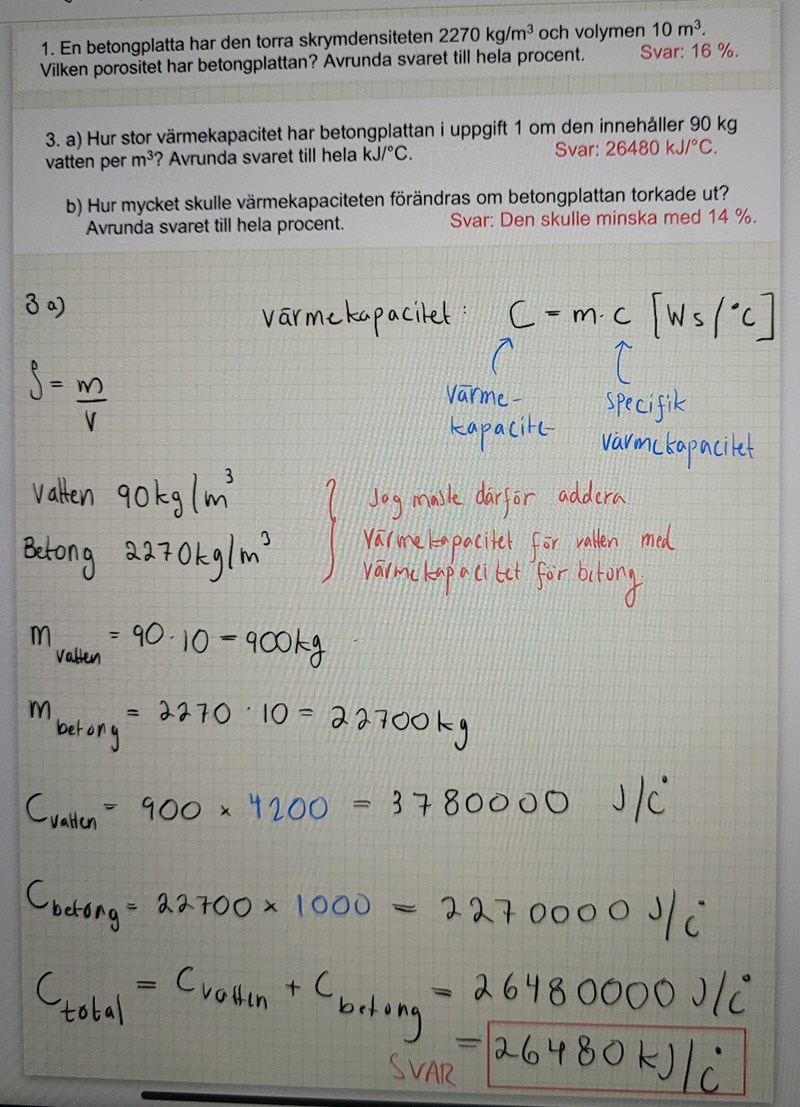 1. En betongplatta har den torra skrymdensiteten 2270 kg/m³ och volymen 10 m³.
Vilken porositet har betongplattan? Avrunda svaret till hela procent. Svar: 16 %.
3. a) Hur stor värmekapacitet har betongplattan i uppgift 1 om den innehåller 90 kg
vatten per m³? Avrunda svaret till hela kJ/°C. Svar: 26480 kJ/°C.
b) Hur mycket skulle värmekapaciteten förändras om betongplattan torkade ut?
Avrunda svaret till hela procent. Svar: Den skulle minska med 14 %.
3 a)
värmekapacitet: C = m · c [Ws/°C]
värme-
kapacite
specifik
värmekapacitet
ρ = m/V
Vatten 90 kg/m³
Betong 2270 kg/m³
Jag måste därför addera
värmekapacitet för vatten med
värmekapacitet för betong.
m vatten = 90 · 10 = 900 kg
m betong = 2270 · 10 = 22700 kg
C vatten = 900 × 4200 = 3780000 J/C°
C betong = 22700 × 1000 = 2270000 J/C°
C total = C vatten + C betong = 26480000 J/C°
= 26480 kJ/C°
SVAR